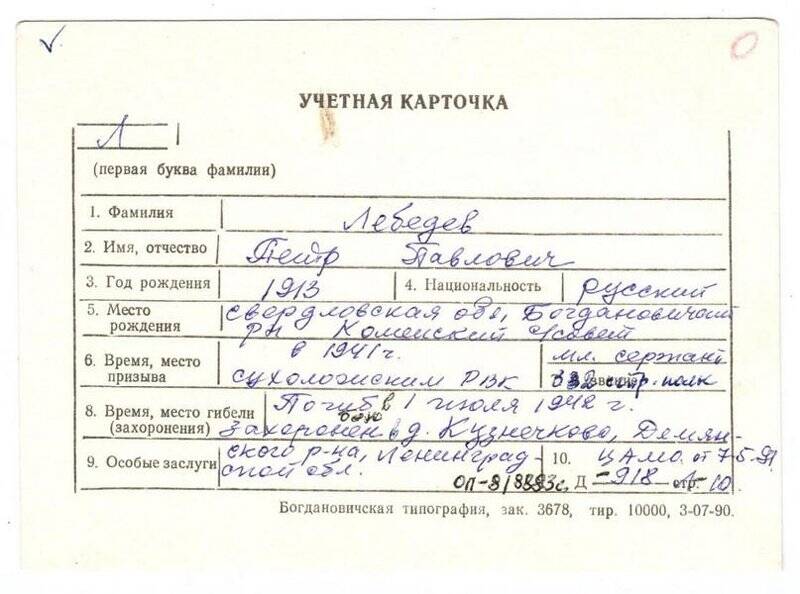 УЧЕТНАЯ КАРТОЧКА
Л
(первая буква фамилии)
1. Фамилия Лебедев
2. Имя, отчество Петр Павлович
3. Год рождения 1913 4. Национальность русский
5. Место рождения свердловская обл, Богдановичский
рн Коменский с/совет
6. Время, место призыва в 1941 г. мл. сержант
сухоложским РВК стр. полк
8. Время, место гибели (захоронения) Погиб в бою 1 июля 1942 г.
Захоронен в д. Кузнечково, Демян-
9. Особые заслуги ского р-на, Ленинград- 10. ЦАМО от 7-5-91
ской обл. Д -918 стр. 10
Богдановичская типография, зак. 3678, тир. 10000, 3-07-90.